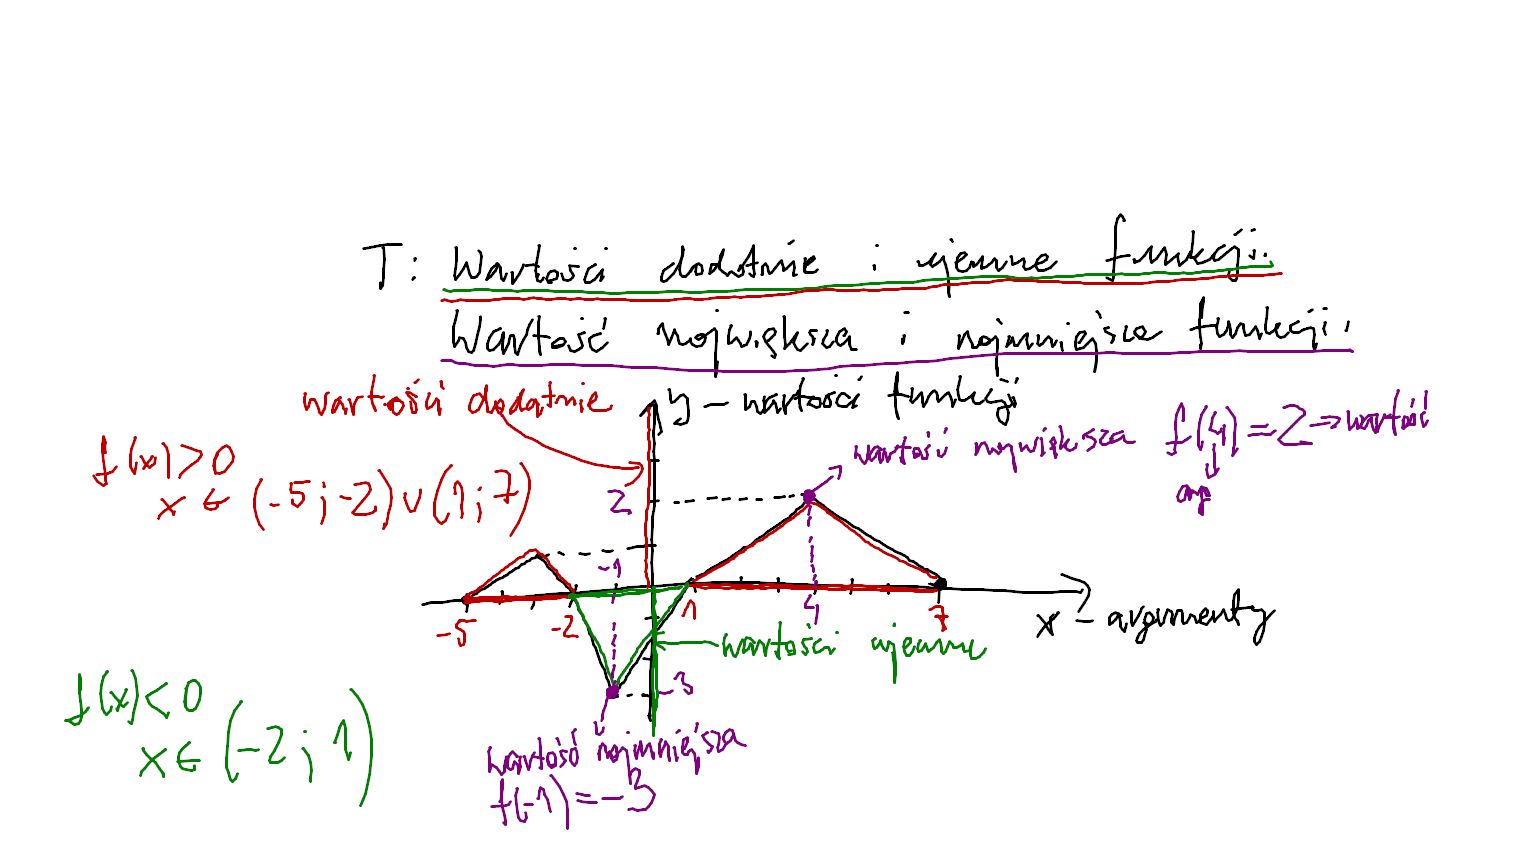 T: Wartości dodatnie i ujemne funkcji.
Wartość największa i najmniejsza funkcji.
wartości dodatnie
y – wartości funkcji
f(x) > 0
x ∈ (-5 ; -2) ∪ (1 ; 7)
wartość największa
f(4) = 2 → wartość
arg
2
-1
-5
-2
1
4
7
x – argumenty
wartości ujemne
-3
f(x) < 0
x ∈ (-2 ; 1)
wartość najmniejsza
f(-1) = -3